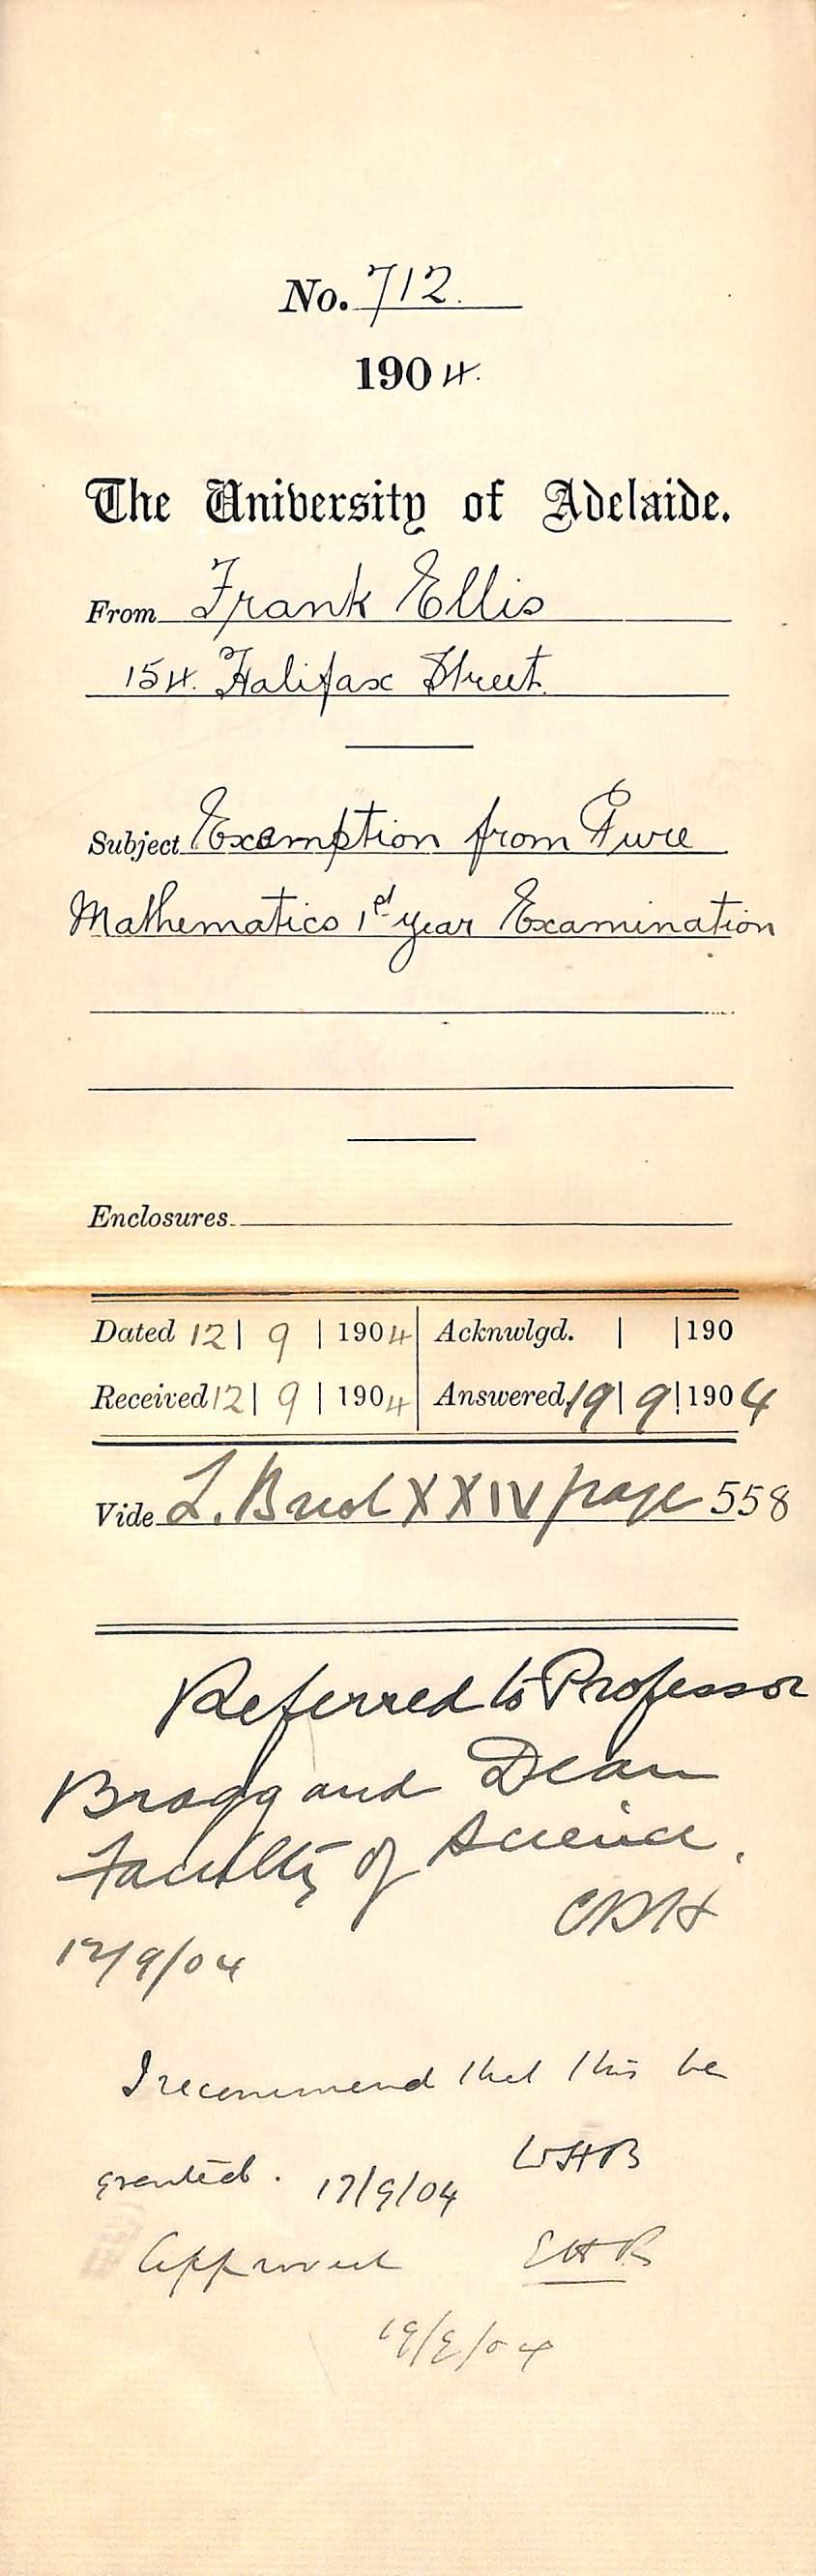 No. 712.
1904.
The University of Adelaide.
From Frank Ellis
154. Halifax Street.
Subject Exemption from Pure
Mathematics 1st year Examination
Enclosures
Dated 12 | 9 | 1904 Acknwlgd. | | 190
Received 12 | 9 | 1904 Answered 19 | 9 | 1904
Vide L. XXIV page 558
Referred to Professor
Bragg and Dean
Faculty of Science.
CRH
12/9/04
I recommend that this be
granted. 17/9/04 WHB
Approved EHR
19/9/04